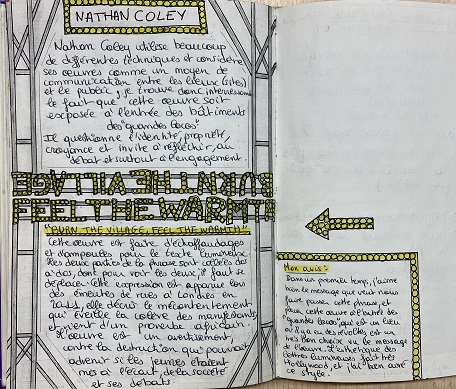 NATHAN COLEY
Nathan Coley utilise beaucoup
de différentes techniques et considère
ses œuvres comme un moyen de
communication entre les lieux (sites)
et le public, je trouve donc intéressant
le fait que cette œuvre soit
exposée à l'entrée des bâtiments
des "grandes locos".
Il questionne l'identité, propriété,
croyance et invite à réfléchir, au
débat et surtout à l'engagement.
BURN THE VILLAGE
FEEL THE WARMTH
"BURN THE VILLAGE, FEEL THE WARMTH"
Cette œuvre est faite d'échaffaudages
et d'ampoules pour le texte lumineux.
Les deux parties de la phrase sont collées dos
à dos, dont pour voir les deux, il faut se
déplacer. Cette expression est apparue lors
des émeutes de rues à Londres en
elle décrit le mécontentement
qui éveille la colère des manifestants
et vient d'un proverbe africain.
L'œuvre est un avertissement,
contre la destruction qui pourrait
advenir si les jeunes étaient
mis à l'écart de la société
et ses débats.
Mon avis :
Dans un premier temps, j'aime
bien le message que veut nous
faire passer cette phrase, et
pour cette œuvre à l'entrée des
"grandes locos" qui est un lieu
où il y a eu des révoltes est un
très bon choix vu le message
de l'œuvre. L'esthétique des
lettres lumineuses fait très
Hollywood, et j'ai bien aimé
ce style.